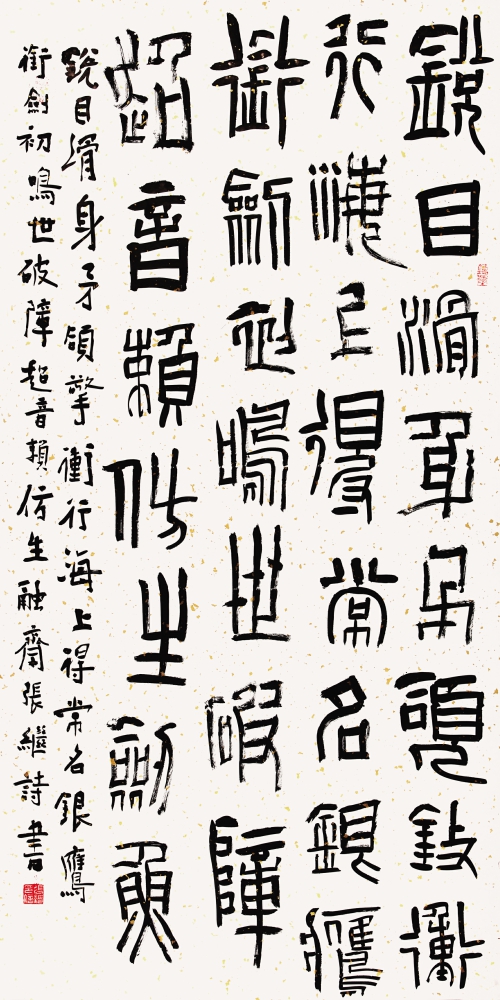 銳目滑身矛頭衝
行海上得常名銀鷹
銜劍初鳴世破障
超音賴仿生劍魚
銳目滑身矛領擎衝行海上得常名銀鷹
銜劍初鳴世破障超音賴仿生融齋張繼詩書